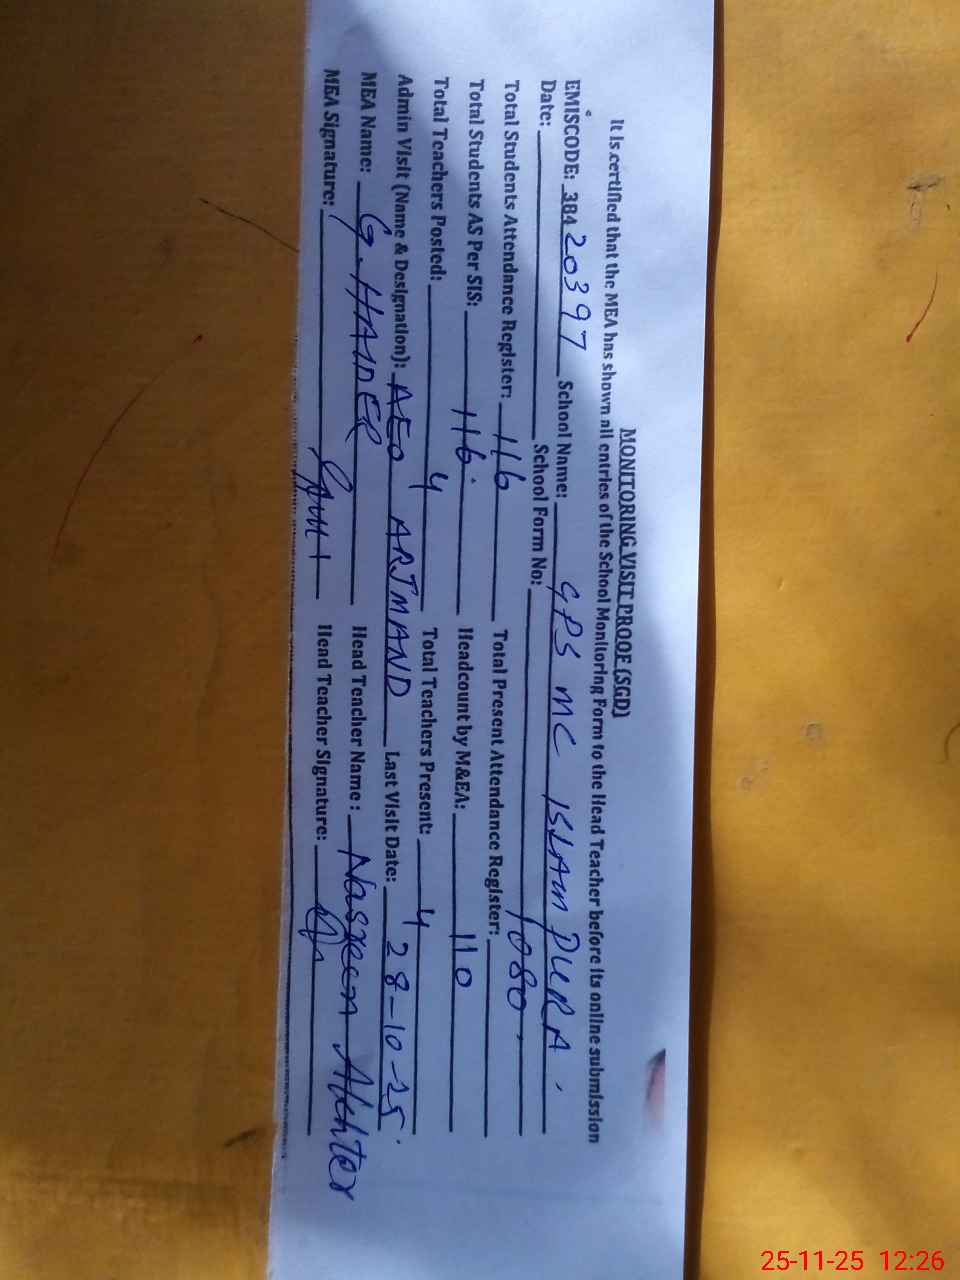 MONITORING VISIT PROOF (SGD)
It is certified that the MEA has shown all entries of the School Monitoring Form to the Head Teacher before its online submission
EMISCODE: 38420397 School Name: GPS MC ISLAM PURA.
Date: School Form No: 1080
Total Students Attendance Register: 116 Total Present Attendance Register:
Total Students AS Per SIS: 116. Headcount by M&EA: 110
Total Teachers Posted: 4 Total Teachers Present: 4
Admin Visit (Name & Designation): AEO ARJMAND Last Visit Date: 28-10-25
MEA Name: G. HAIDER Head Teacher Name: Nasreen Akhter
MEA Signature: Head Teacher Signature:
25-11-25 12:26